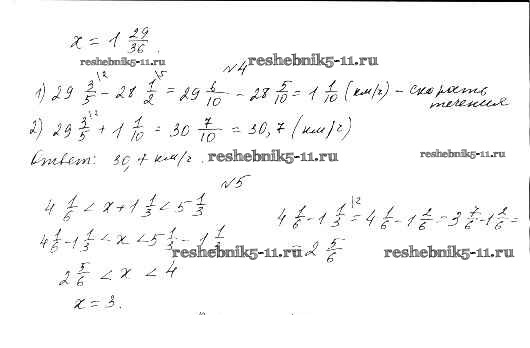 x = 1 29/36.
reshebnik5-11.ru
№4 reshebnik5-11.ru
1) 29 3/5 - 28 1/2 = 29 6/10 - 28 5/10 = 1 1/10 (км/ч) - скорость течения
2) 29 3/5 + 1 1/10 = 30 7/10 = 30,7 (км/ч)
Ответ: 30,7 км/ч. reshebnik5-11.ru reshebnik5-11.ru
№5
4 1/6 < x + 1 1/3 < 5 1/3
4 1/6 - 1 1/3 < x < 5 1/3 - 1 1/3
4 1/6 - 1 1/3 = 4 1/6 - 1 2/6 = 3 7/6 - 1 2/6 =
= 2 5/6
reshebnik5-11.ru reshebnik5-11.ru
2 5/6 < x < 4
x = 3.